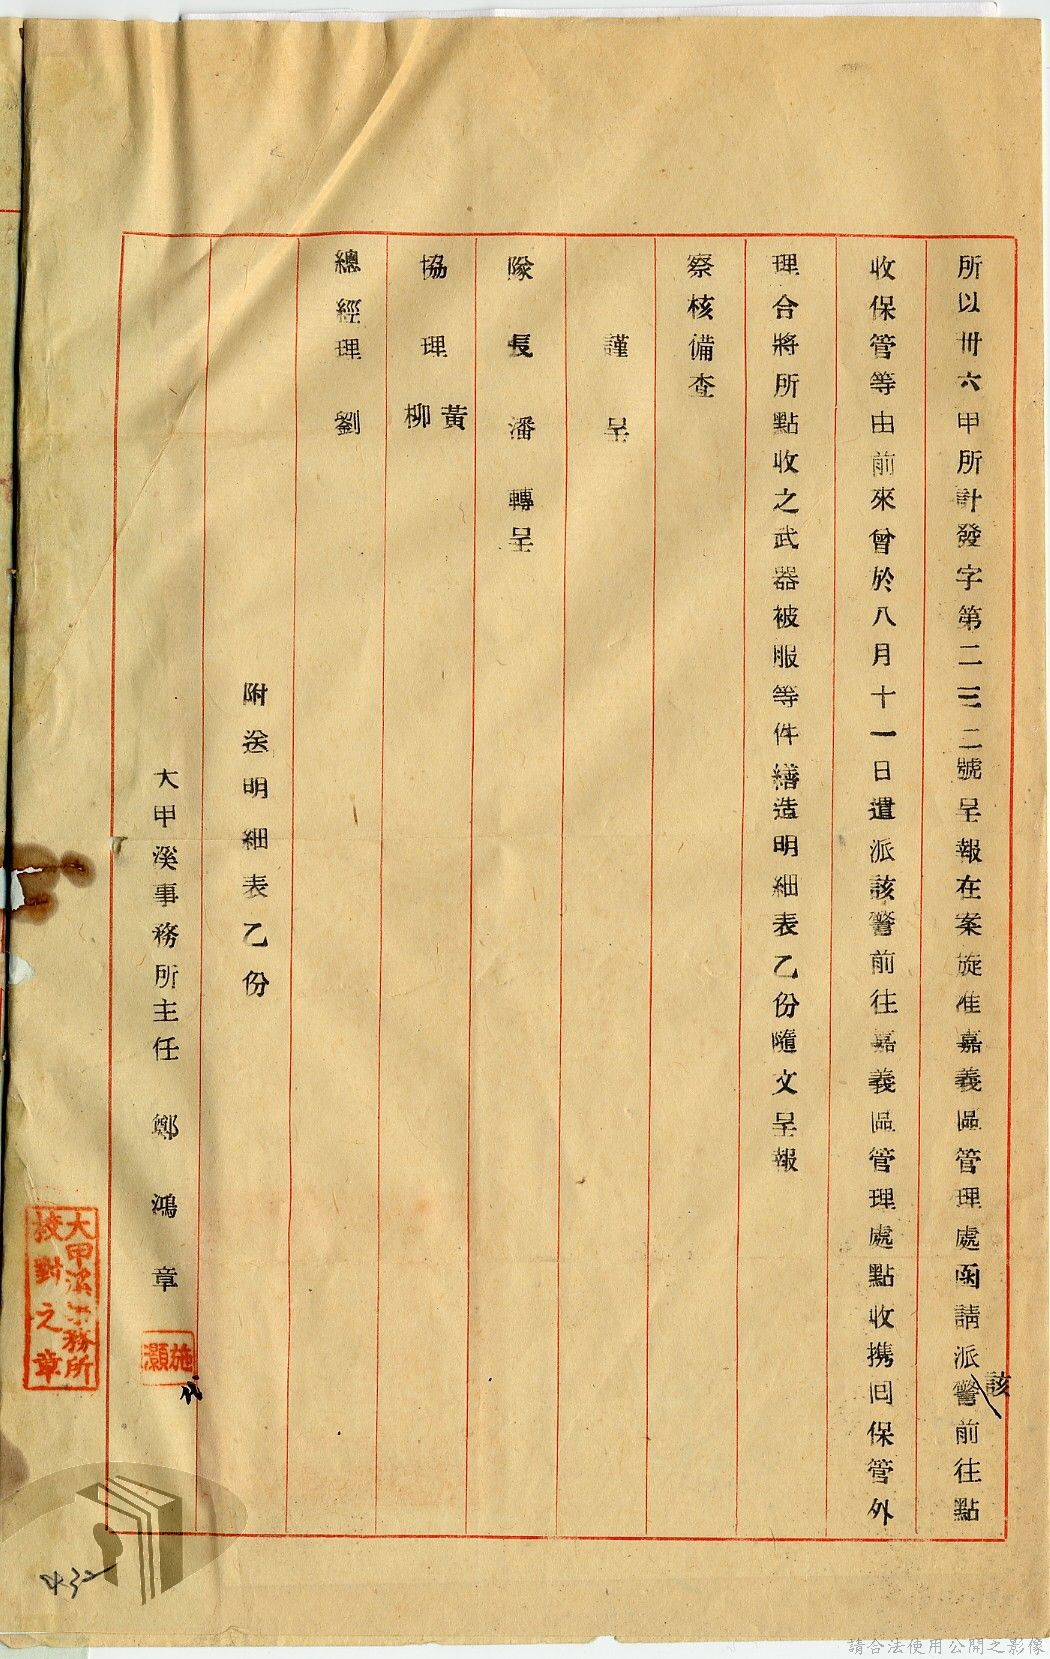 所以卅六甲所計發字第二三二號呈報在案旋准嘉義區管理處函請派該警前往點
收保管等由前來曾於八月十一日遣派該警前往嘉義區管理處點收携回保管外
理合將所點收之武器被服等件繕造明細表乙份隨文呈報
察核備查
謹呈
隊長潘轉呈
協理黃柳
總經理劉
附送明細表乙份
大甲溪事務所主任 鄭鴻章
施灝
代
大甲溪事務所
校對之章
432
請合法使用公開之影像